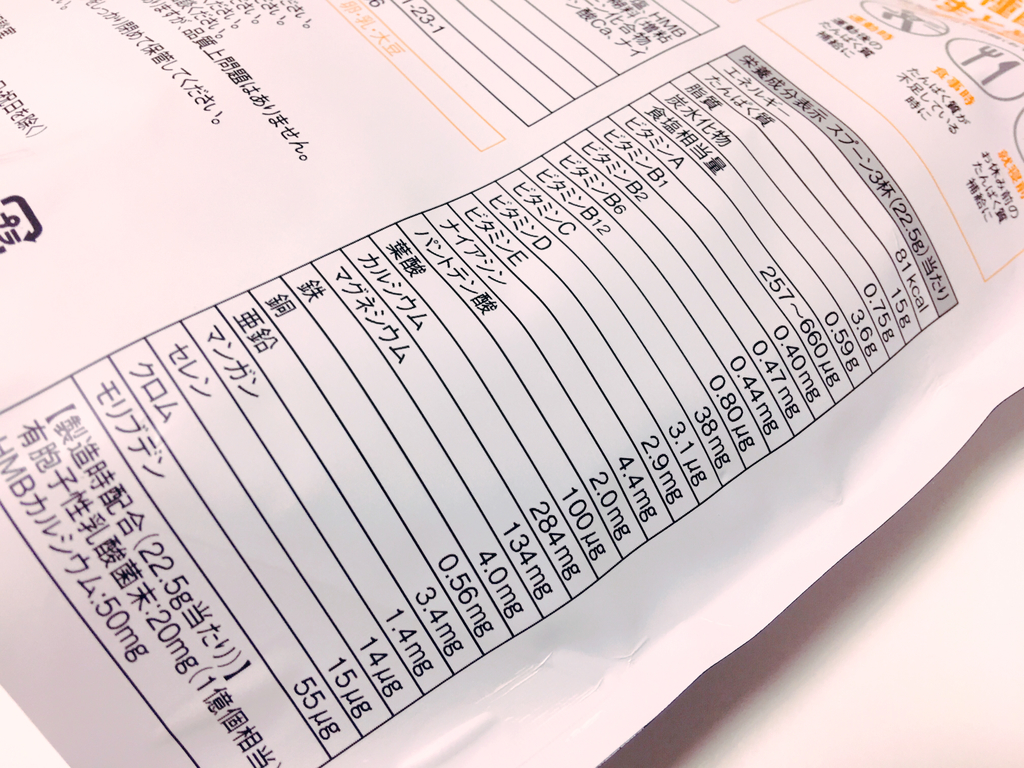 栄養成分表示 スプーン3杯(22.5g)当たり
エネルギー 81kcal
たんぱく質 15g
脂質 0.75g
炭水化物 3.6g
食塩相当量 0.59g
ビタミンA 257～660μg
ビタミンB1 0.40mg
ビタミンB2 0.47mg
ビタミンB6 0.44mg
ビタミンB12 0.80μg
ビタミンC 38mg
ビタミンD 3.1μg
ビタミンE 2.9mg
ナイアシン 4.4mg
パントテン酸 2.0mg
葉酸 100μg
カルシウム 284mg
マグネシウム 134mg
鉄 4.0mg
銅 0.56mg
亜鉛 3.4mg
マンガン 1.4mg
セレン 14μg
クロム 15μg
モリブデン 55μg
【製造時配合(22.5g当たり)】
有胞子性乳酸菌末:20mg(1億個相当)
HMBカルシウム:50mg
品質上問題はありません。
閉めて保管してください。
卵・乳・大豆
運動時
運動後の
たんぱく質
補給に
食事時
たんぱく質が
不足している
時に
お休み前の
たんぱく質
補給に
プラ